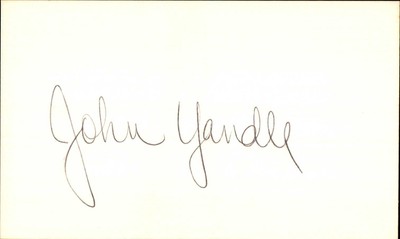 John Yandle